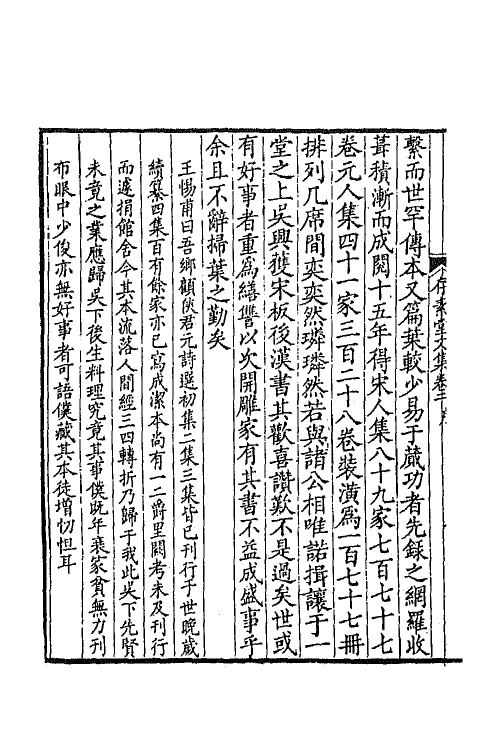 繫而世罕傳本又篇葉較少易于蕆功者先録之網羅收
葺積漸而成閱十五年得宋人集八十九家七百七十七
卷元人集四十一家三百二十八卷裝潢爲一百七十七冊
排列几席間奕奕然璘璘然若與諸公相唯諾揖讓于一
堂之上吳興獲宋板後漢書其歡喜讚歎不是過矣世或
有好事者重爲繕讐以次開雕家有其書不益成盛事乎
余且不辭掃葉之勤矣
王惕甫曰吾鄉顧俠君元詩選初集二集三集皆已刊行于世晚歲
續纂四集百有餘家亦已寫成潔本尚有一二爵里闕考未及刊行
而遽捐館舍今其本流落人間經三四轉折乃歸于我此吳下先賢
未竟之業應歸吳下後生料理究竟其事僕旣年衰家貧無力刊
布眼中少俊亦無好事者可語僕藏其本徒增忉怛耳
存素堂文集卷二